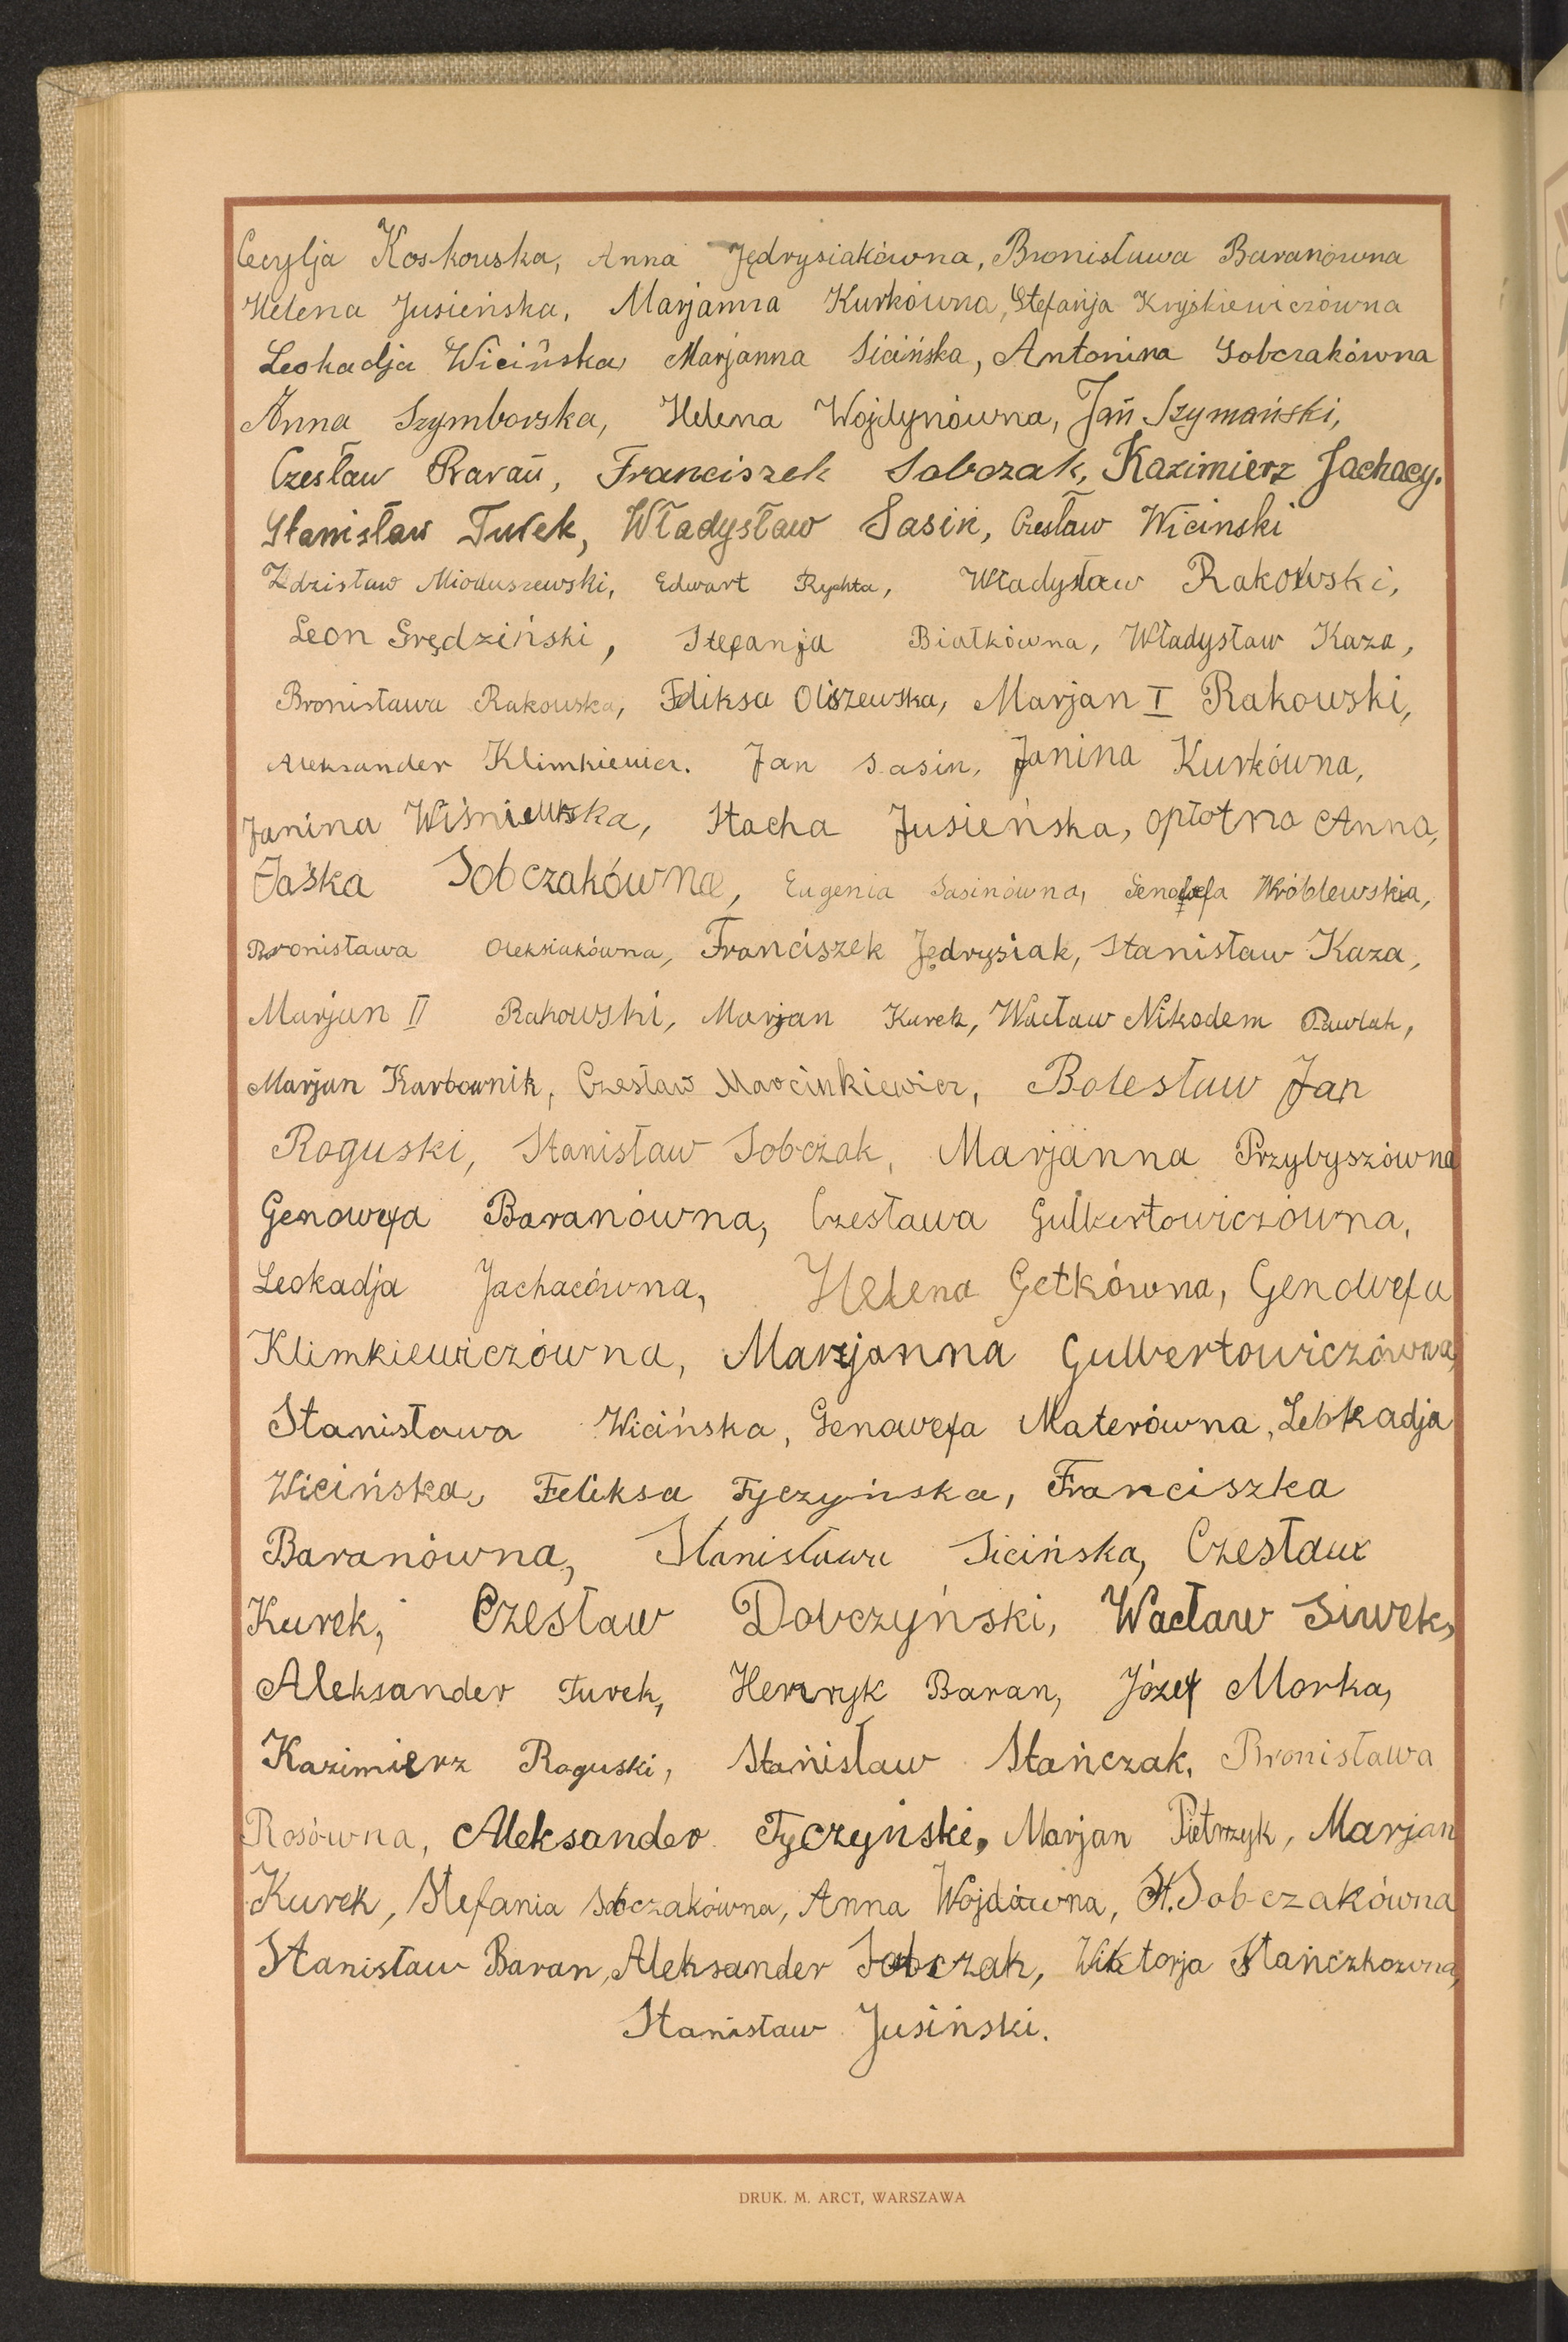 Cecylja Koskowska, Anna Jędrysiakówna, Bronisława Baranówna
Helena Jusieńska, Marjanna Kurkówna, Stefanja Kryśkiewiczówna
Leokadja Wicińska, Marjanna Sicińska, Antonina Sobczakówna
Anna Szymborska, Helena Wojdynówna, Jan Szymański,
Czesław Baran, Franciszek Sobczak, Kazimierz Jachacy.
Stanisław Turek, Władysław Sasin, Czesław Wicinski
Zdzisław Mioduszewski, Edwart Rychta, Władysław Rakowski,
Leon Grędziński, Stefanja Białkówna, Władysław Kaza,
Bronisława Rakowska, Feliksa Oliszewska, Marjan I Rakowski,
Aleksander Klimkiewicz. Jan Sasin, Janina Kurkówna,
Janina Wiśniewska, Stacha Jusieńska, opłotna Anna,
Jaśka Sobczakówna, Eugenia Sasinówna, Genowefa Wróblewska,
Bronisława Oleksiakówna, Franciszek Jędrysiak, Stanisław Kaza,
Marjan II Rakowski, Marjan Kurek, Wacław Nikodem Pawlak,
Marjan Karbownik, Czesław Marcinkiewicz, Bolesław Jan
Roguski, Stanisław Sobczak, Marjanna Przybyszówna
Genowefa Baranówna, Czesława Gulbertowiczówna,
Leokadja Jachacówna, Helena Getkówna, Genowefa
Klimkiewiczówna, Marjanna Gulbertowiczówna,
Stanisława Wicińska, Genowefa Materówna, Leokadja
Wicińska, Feliksa Tyczyńska, Franciszka
Baranówna, Stanisława Sicińska, Czesław
Kurek, Czesław Dobczyński, Wacław Siwek,
Aleksander Turek, Henryk Baran, Józef Morka,
Kazimierz Roguski, Stanisław Stańczak, Bronisława
Rosówna, Aleksander Tyczyński, Marjan Pietrzyk, Marjan
Kurek, Stefania Sobczakówna, Anna Wojdówna, St. Sobczakówna
Stanisław Baran, Aleksander Sobczak, Wiktorja Stańczkowna,
Stanisław Jusiński.
DRUK. M. ARCT, WARSZAWA